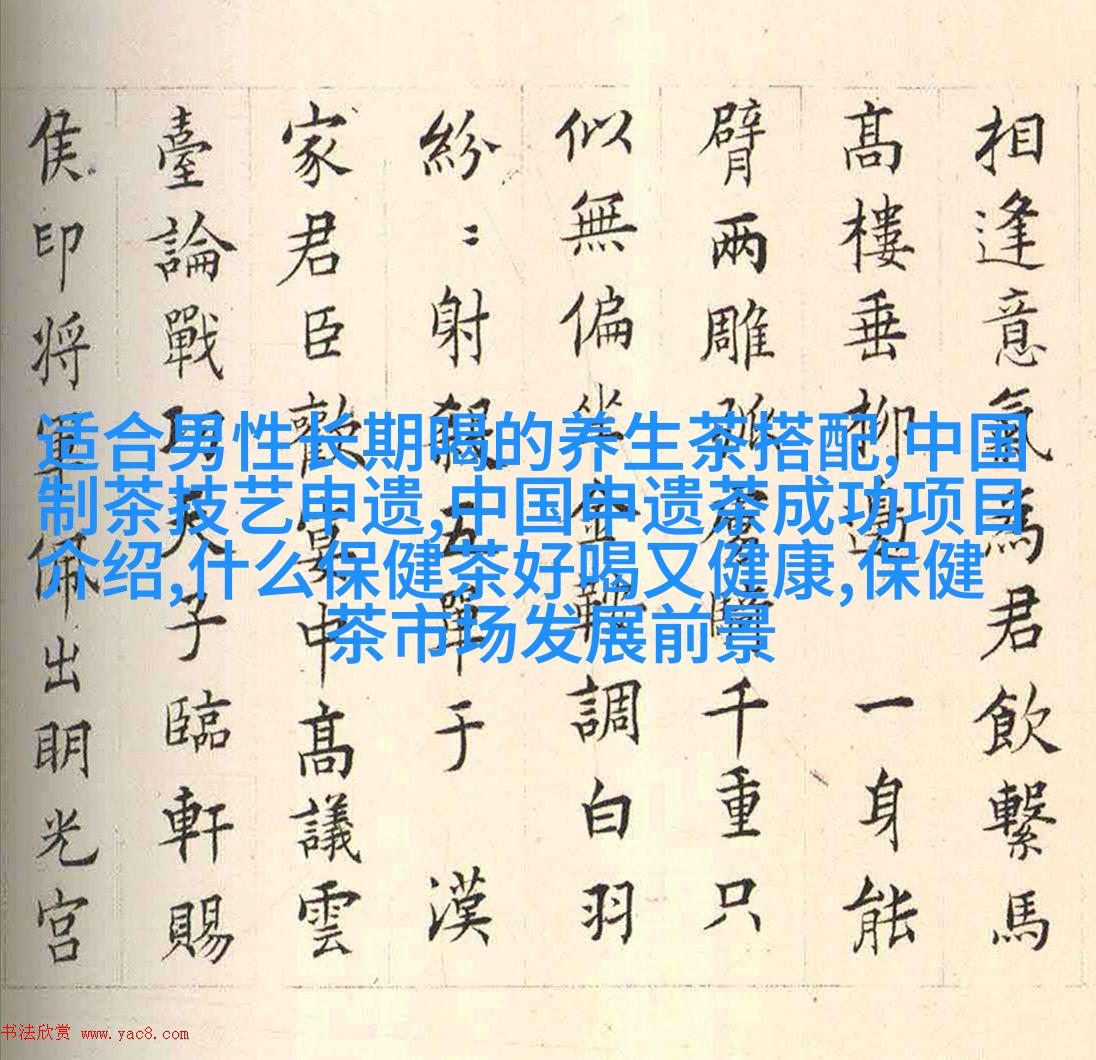 相逢意氣為君飲繫馬
髙樓垂柳邉 一身能
臂兩雕弧虜騎千重只
似無偏坐金鞍調白羽
紛〻射殺五單于 漢
家君臣歡宴中髙議雲
臺論戰功天子臨軒賜
侯印将軍佩出明光宫
适合男性长期喝的养生茶搭配,中国
制茶技艺申遗,中国申遗茶成功项目
介绍,什么保健茶好喝又健康,保健
茶市场发展前景
书法欣赏 www.yac8.com